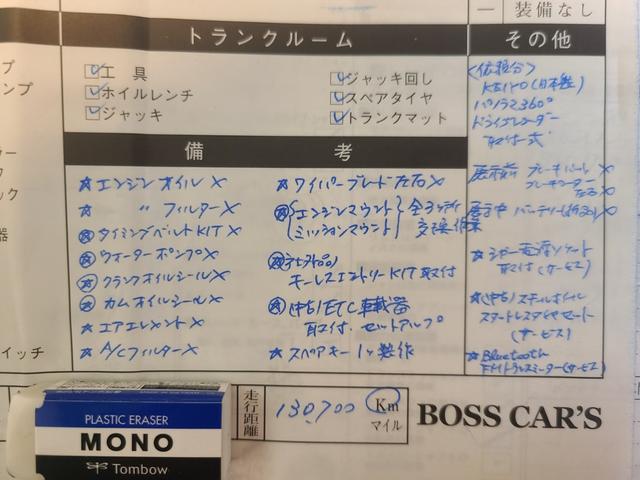 一 装備なし
プ
ンプ
ック
器
イッチ
トランクルーム
工具
ホイルレンチ
ジャッキ
ジャッキ回し
スペアタイヤ
トランクマット
その他
<依頼分>
KEIYO(日本製)
パノラマ360°
ドライブレコーダー
取付一式
ブレーキパール×
ブレーキローター
左右×
展示中 バッテリー
取付(サービス)
(中古)スチールホイル
スタートレスタイヤセット
(サービス)
☆Bluetooth
FMトランスミーター(サービス)
備考
☆エンジンオイル×
☆ 〃 フィルター×
☆タイミングベルトKIT×
☆ウォーターポンプ×
☆クランクオイルシール×
☆カムオイルシール×
☆エアエレメント×
☆A/Cフィルター×
☆ワイパーブレード左右×
☆エンジンマウント
ミッションマウント
交換作業
キーレスエントリーKIT取付
☆(中古)ETC車載器
取付、セットアップ
☆スペアキー1ヶ製作
走行距離
130,700 Km
マイル
BOSS CAR'S
PLASTIC ERASER
MONO
Tombow